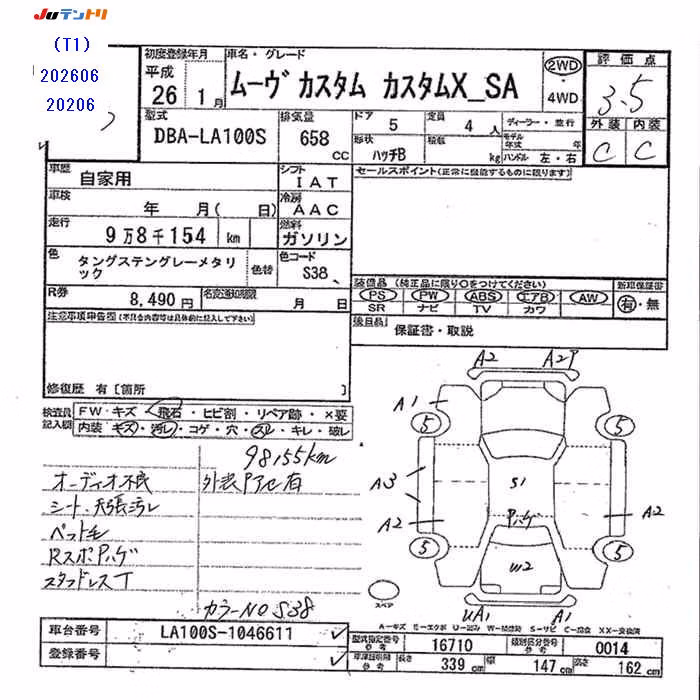 Juテントリ
(T1)
202606
20206
初度登録年月
平成 26 1月
車名・グレード
ムーヴ カスタム カスタムX_SA
2WD
4WD
評価点
3.5
外装 内装
C C
型式
DBA-LA100S
排気量
658 CC
ドア 5
定員 4人
形状 ハッチB
積載 kg
ディーラー・並行
モデル年式 年
ハンドル 左・右
車歴 自家用
シフト IAT
セールスポイント(正常に機能するものに限ります)
車検 年 月( 日)
冷房 AAC
走行 9万8千154 km
燃料 ガソリン
色 タングステングレーメタリック
色替
色コード S38
装備品 (純正品に限り○をつけてください)
新車保証書
PS PW ABS エアB AW
SR ナビ TV カワ
有・無
R券 8,490円
名変通知期限 月 日
後日品 保証書・取説
注意事項申告欄(不具合内容等は具体的に記入して下さい)
修復歴 有〔箇所 〕
検査員記入欄
FW・キズ・飛石・ヒビ割・リペア跡・×要
内装・キズ・汚レ・コゲ・穴・スレ・キレ・破レ
98155km
オーディオ不良
外装Pアセ有
シート、天張汚レ
ペット毛
RスポPハゲ
スタッドレスT
カラーNO S38
A2 A2P
A1
5 5
A3
S1
Pハゲ
A2 A2
5 5
W2
UA1 A1
スペア
A-キズ E-エクボ U-凹ミ W-補修跡 S-サビ C-腐食 XX-交換済
車台番号 LA100S-1046611
登録番号
型式指定番号 参考 16710
類別区分番号 参考 0014
車庫証明用 参考 長さ 339cm 幅 147cm 高さ 162cm